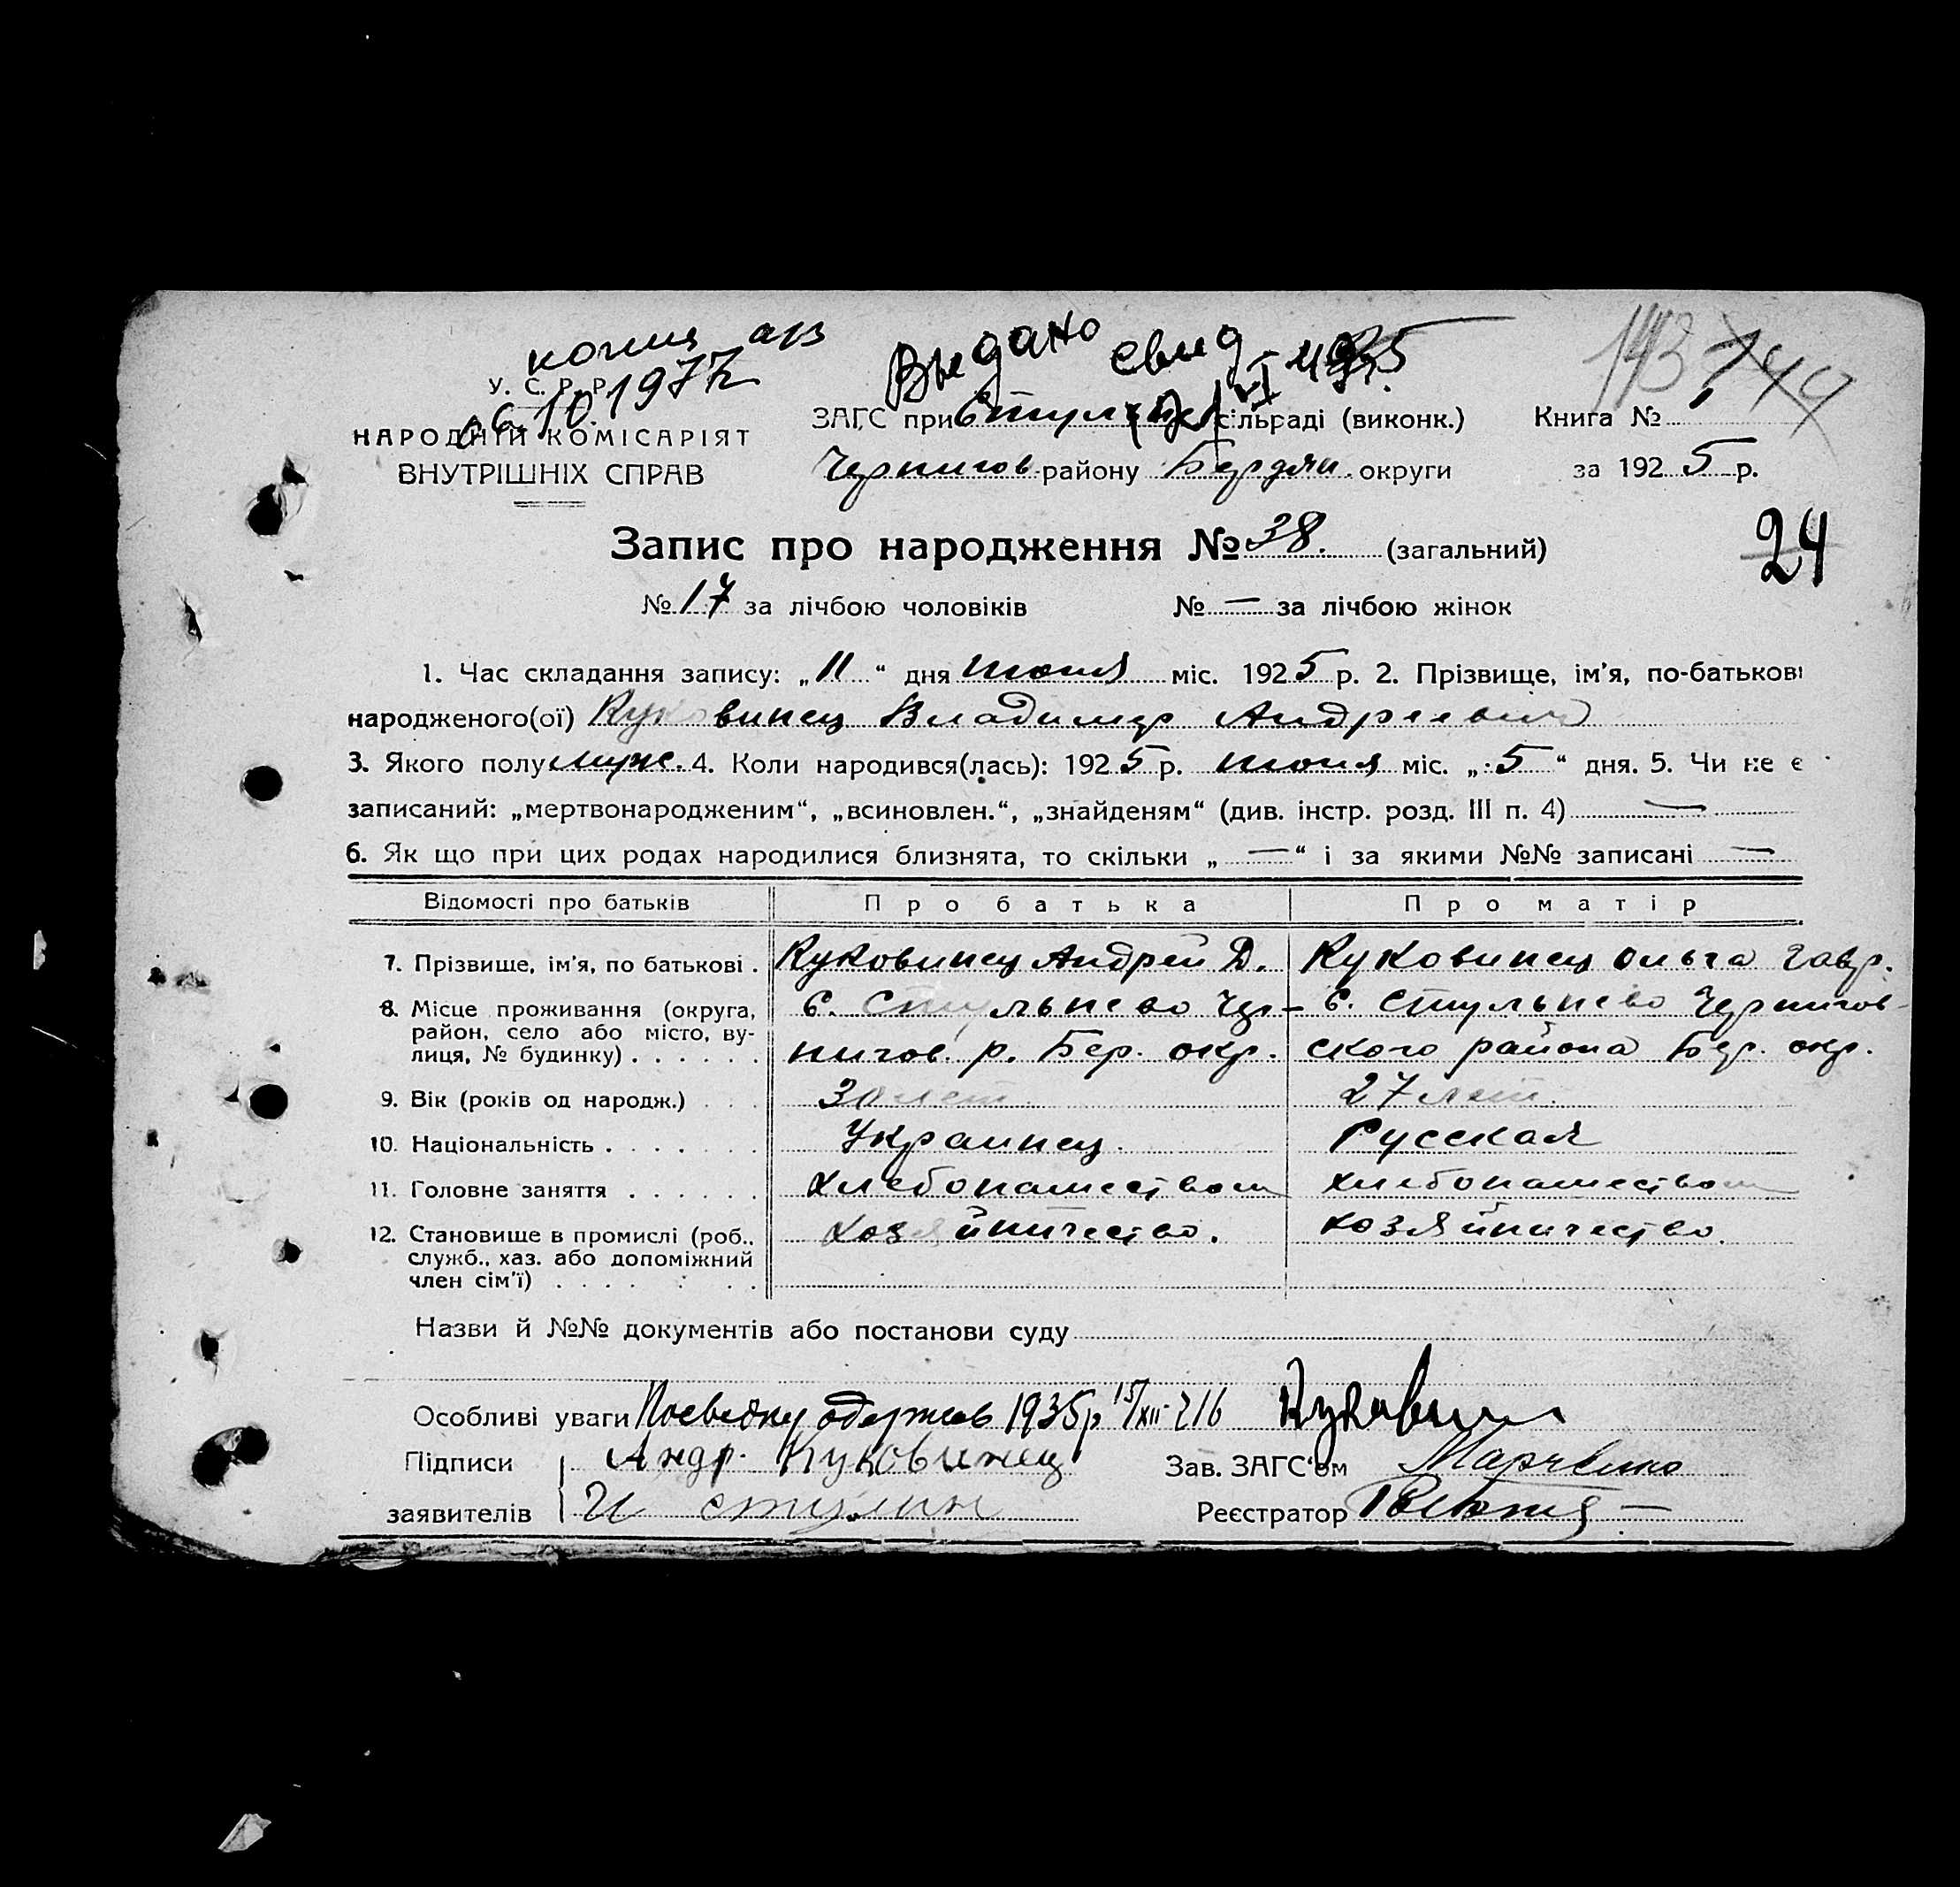 копия
Выдано свид
1977
У. С. Р. Р.
НАРОДНІЙ КОМІСАРІЯТ
ВНУТРІШНІХ СПРАВ
ЗАГС при Стульн сільраді (виконк.)
Чернигов району Бердян. округи
Книга № 1
за 1925 р.
143
24
Запис про народження № 38. (загальний)
№ 17 за лічбою чоловіків № — за лічбою жінок
1. Час складання запису: „11“ дня июня міс. 1925 р. 2. Прізвище, ім'я, по-батькові
народженого(ої) Куковинец Владимир Андреевич
3. Якого полу муж. 4. Коли народився(лась): 1925 р. июня міс. „5“ дня. 5. Чи не є
записаний: „мертвонародженим“, „всиновлен.“, „знайденям“ (див. інстр. розд. III п. 4) —
6. Як що при цих родах народилися близнята, то скільки „—“ і за якими №№ записані —
Відомості про батьків Про батька Про матір
7. Прізвище, ім'я, по батькові . Куковинец Андрей Д. Куковинец Ольга Гавр.
8. Місце проживання (округа, район, село або місто, вулиця, № будинку) . . . . . .
с. Стульнево Чер-
нигов. р. Бер. окр.
с. Стульнево Чернигов-
ского района Бер. окр.
9. Вік (років од народж.) . . . 30 лет. 27 лет.
10. Національність . . . . . . . Украинец. Русская
11. Головне заняття . . . . . . Хлебопашеством хлебопашеством
12. Становище в промислі (роб., служб., хаз. або допоміжний член сім'ї) . . . . . .
Хозяйничество. хозяйничество.
Назви й №№ документів або постанови суду
Особливі уваги Посвідку одержав 1935р 15/XII 216 Куковин
Підписи Андр. Куковинец Зав. ЗАГС'ом
заявителів Реєстратор